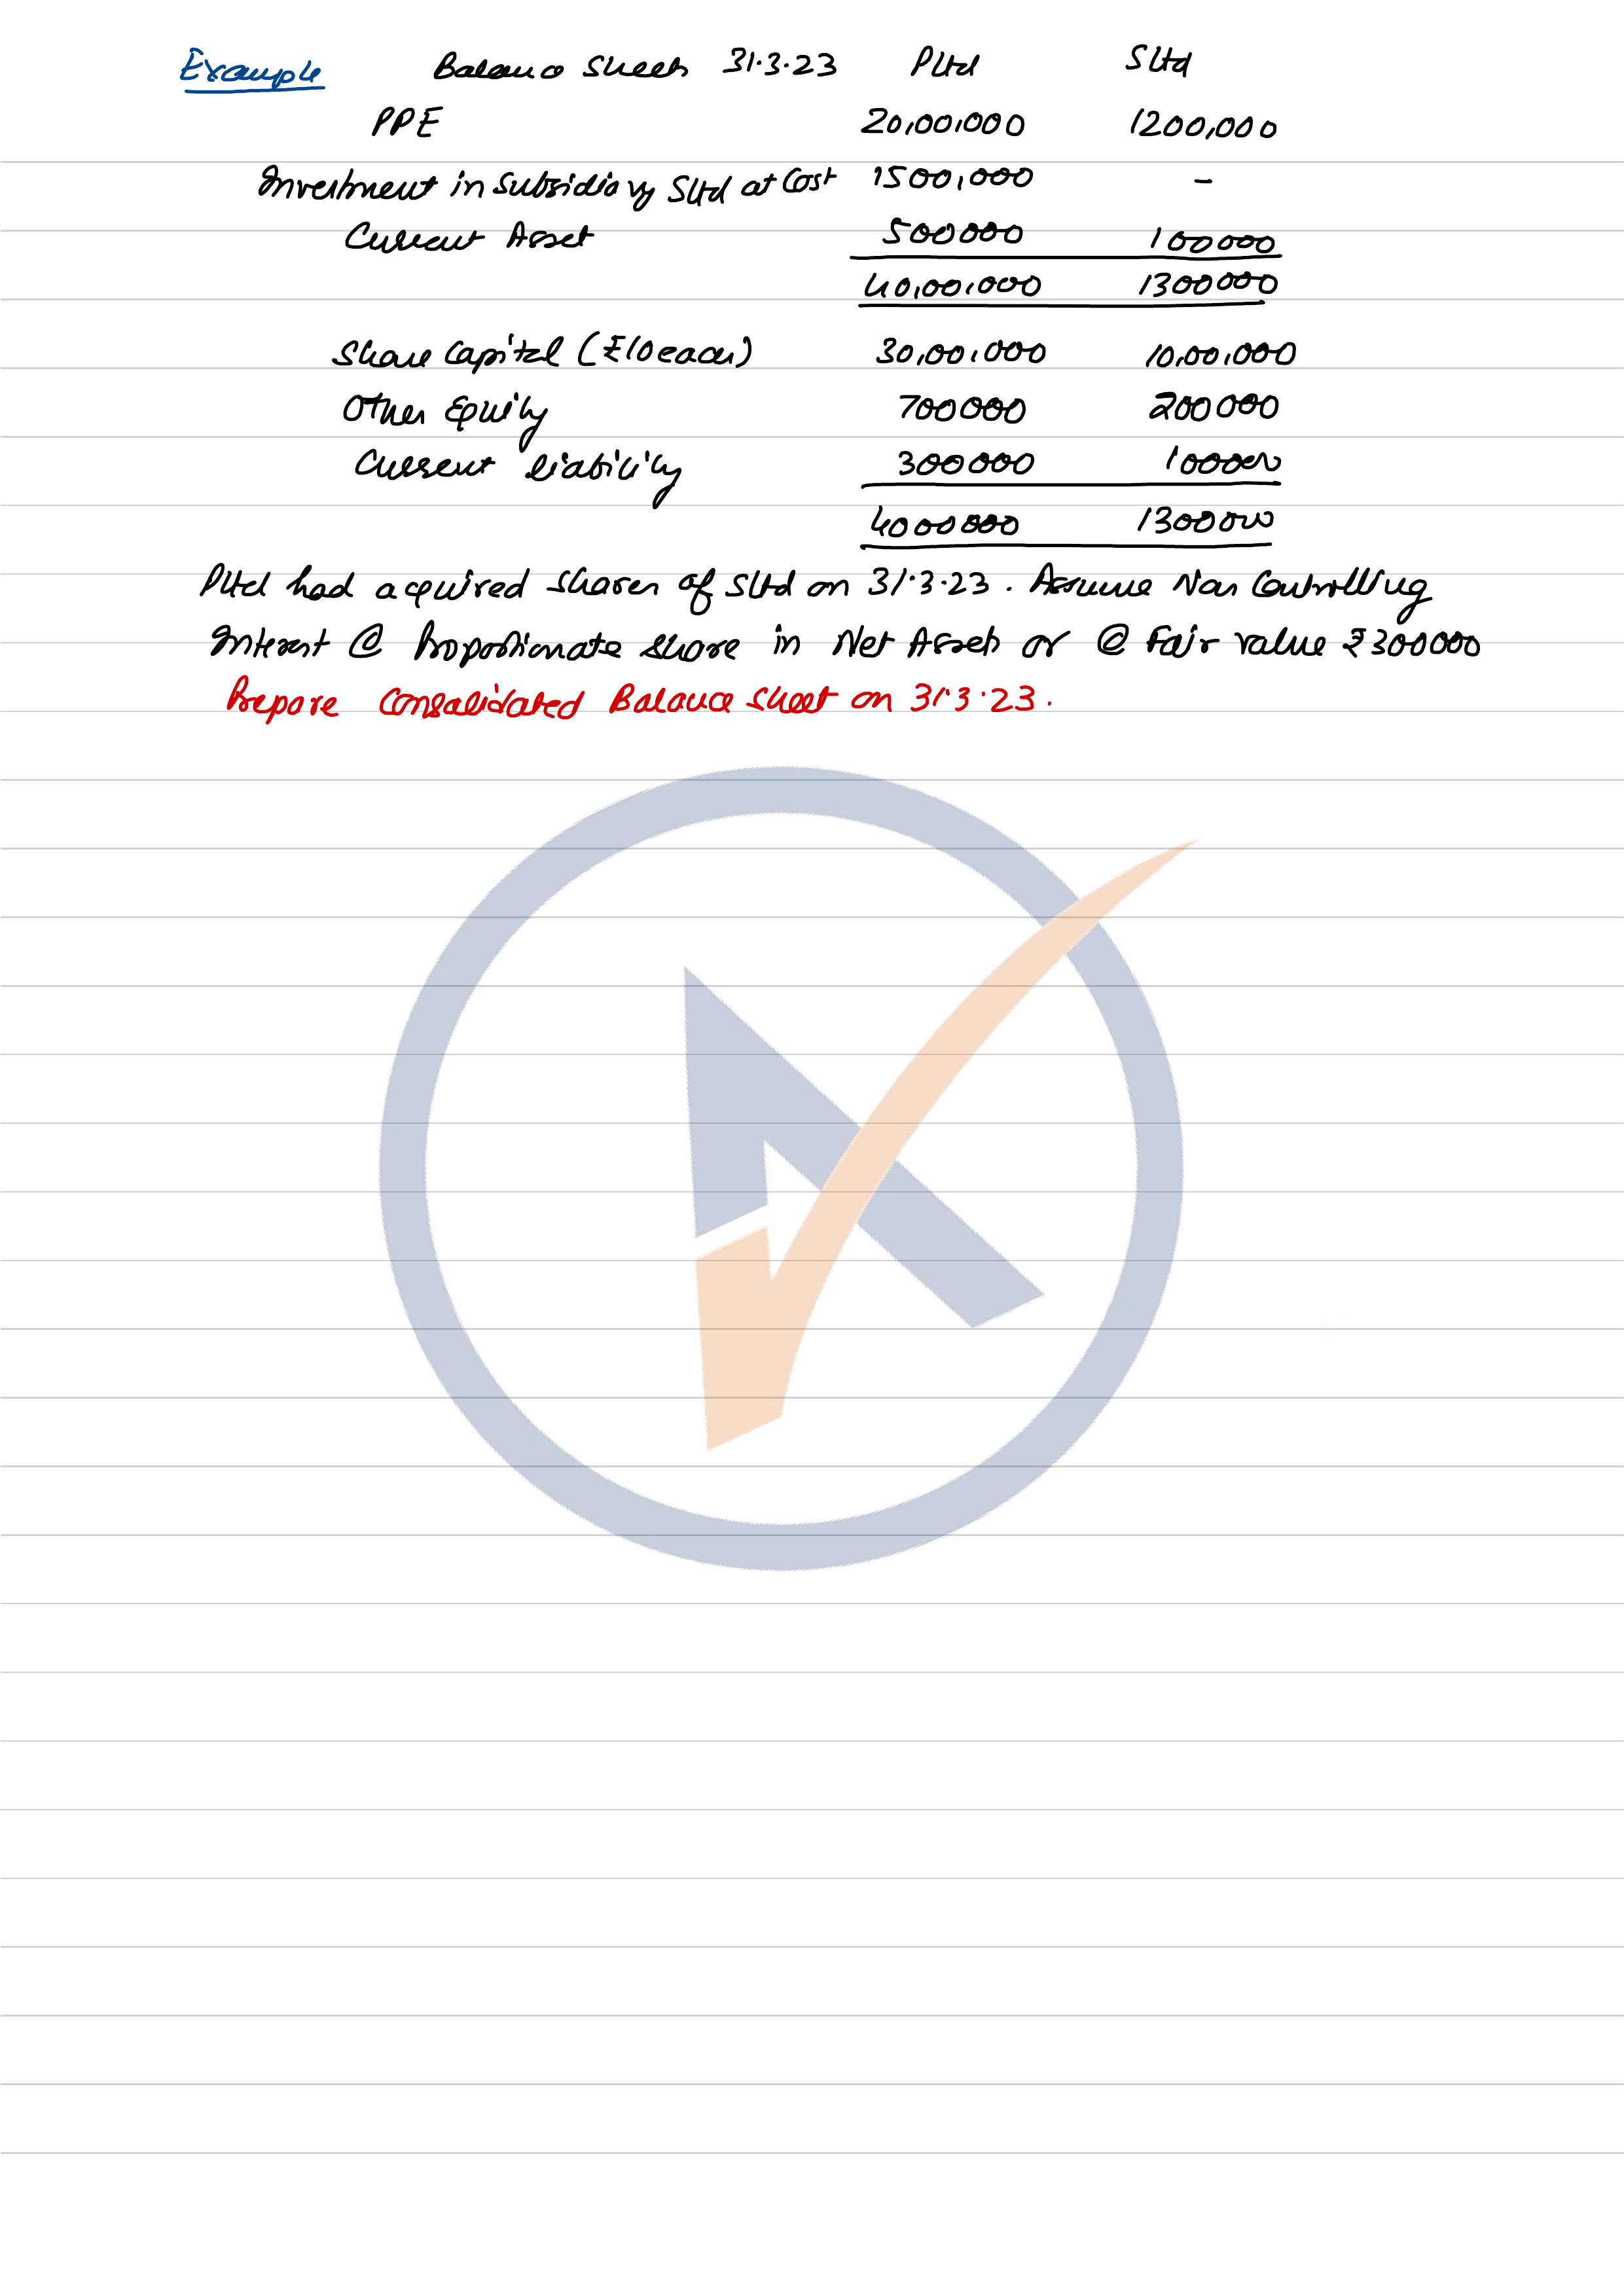 Example Balance Sheets 31.3.23 P Ltd S Ltd
PPE 20,00,000 1200,000
Investment in Subsidiary S Ltd at Cost 1500,000 -
Current Asset 500000 100000
40,00,000 1300000
Share Capital (₹10 each) 30,00,000 10,00,000
Other Equity 700000 200000
Current liability 300000 100000
4000000 1300000
P Ltd had acquired shares of S Ltd on 31.3.23. Assume Non Controlling
Interest @ Proportionate share in Net Assets or @ Fair value ₹300000
Prepare Consolidated Balance sheet on 31.3.23.